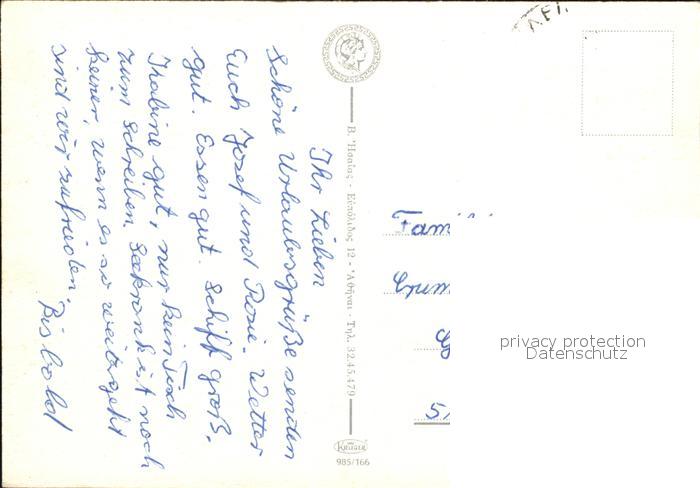 Ihr Lieben
Schöne Urlaubsgrüße senden
Euch Josef und Rosi. Wetter
gut. Essen gut. Schiff groß.
Kabine gut, nur kein Tisch
zum Schreiben. Seekrank ist noch
keiner, wenn es so weitergeht
sind wir zufrieden.
Bis bald
Β. Ἡσαΐας - Εὐπόλιδος 12 - Ἀθῆναι - Τηλ. 32.45.479
KRÜGER
985/166
Fami
privacy protection
Datenschutz